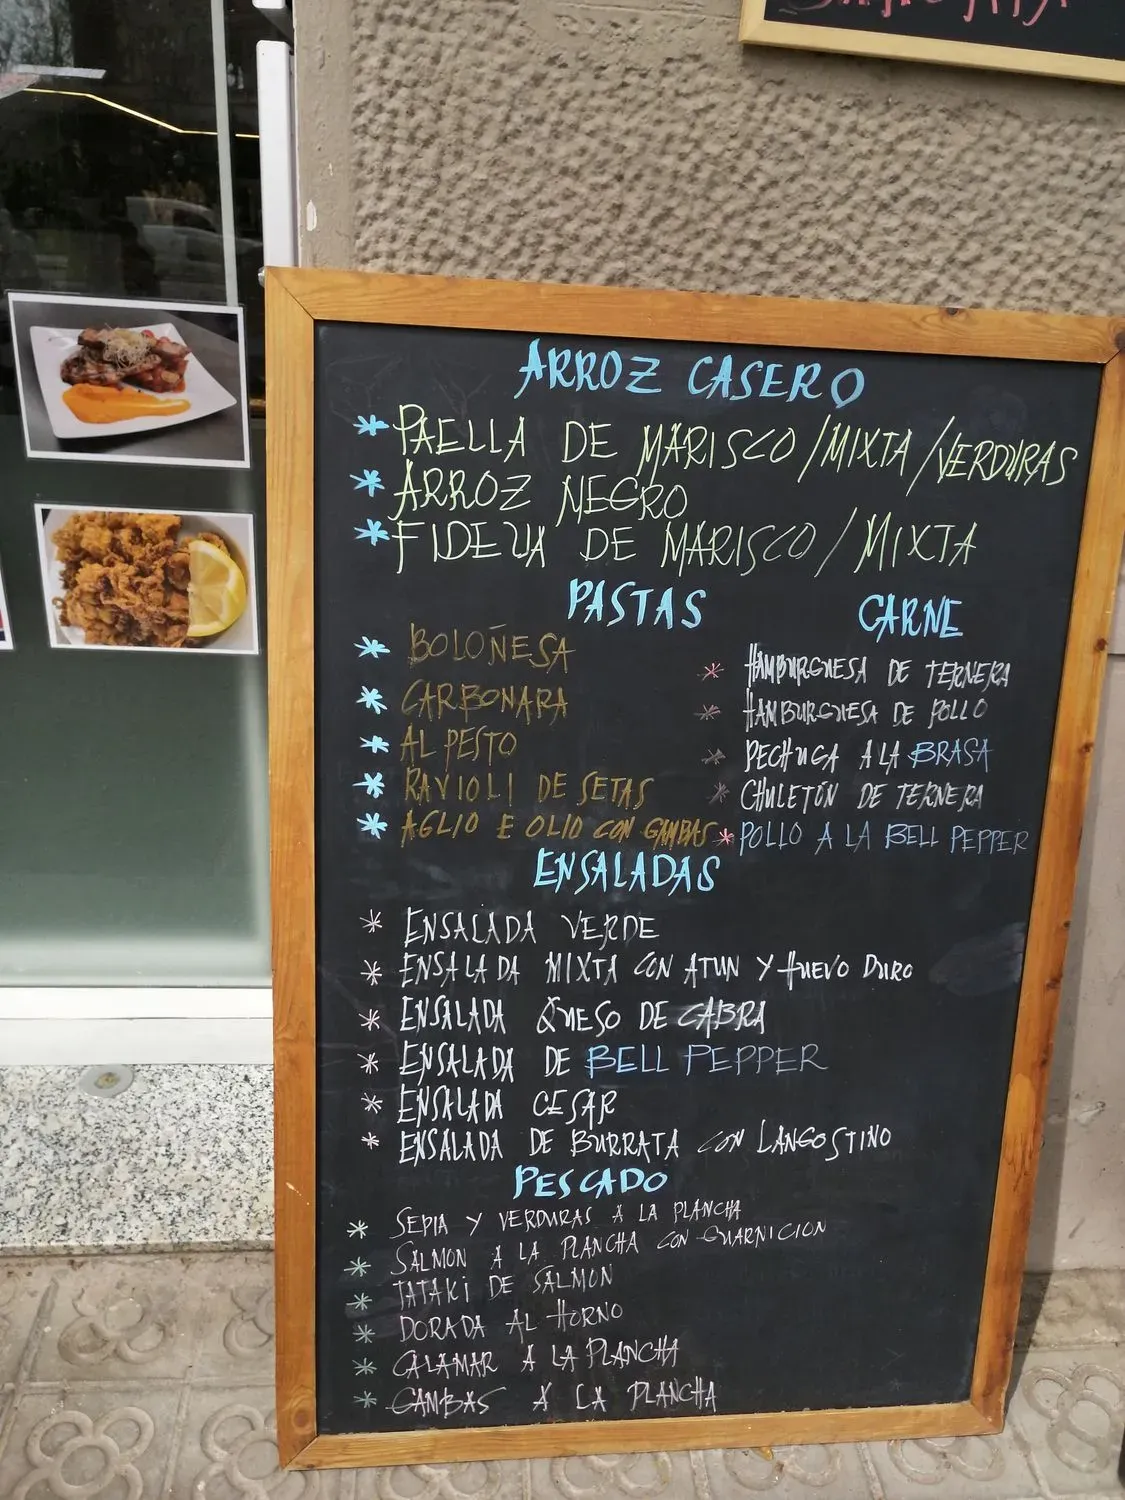 ARROZ CASERO
* PAELLA DE MARISCO/MIXTA/VERDURAS
* ARROZ NEGRO
* FIDEUA DE MARISCO/MIXTA
PASTAS
* BOLOÑESA
* CARBONARA
* AL PESTO
* RAVIOLI DE SETAS
* AGLIO E OLIO CON GAMBAS
CARNE
* HAMBURGUESA DE TERNERA
* HAMBURGUESA DE POLLO
* PECHUGA A LA BRASA
* CHULETÓN DE TERNERA
* POLLO A LA BELL PEPPER
ENSALADAS
* ENSALADA VERDE
* ENSALADA MIXTA CON ATUN Y HUEVO DURO
* ENSALADA QUESO DE CABRA
* ENSALADA DE BELL PEPPER
* ENSALADA CESAR
* ENSALADA DE BURRATA CON LANGOSTINO
PESCADO
* SEPIA Y VERDURAS A LA PLANCHA
* SALMON A LA PLANCHA CON GUARNICION
* TATAKI DE SALMON
* DORADA AL HORNO
* CALAMAR A LA PLANCHA
* GAMBAS A LA PLANCHA